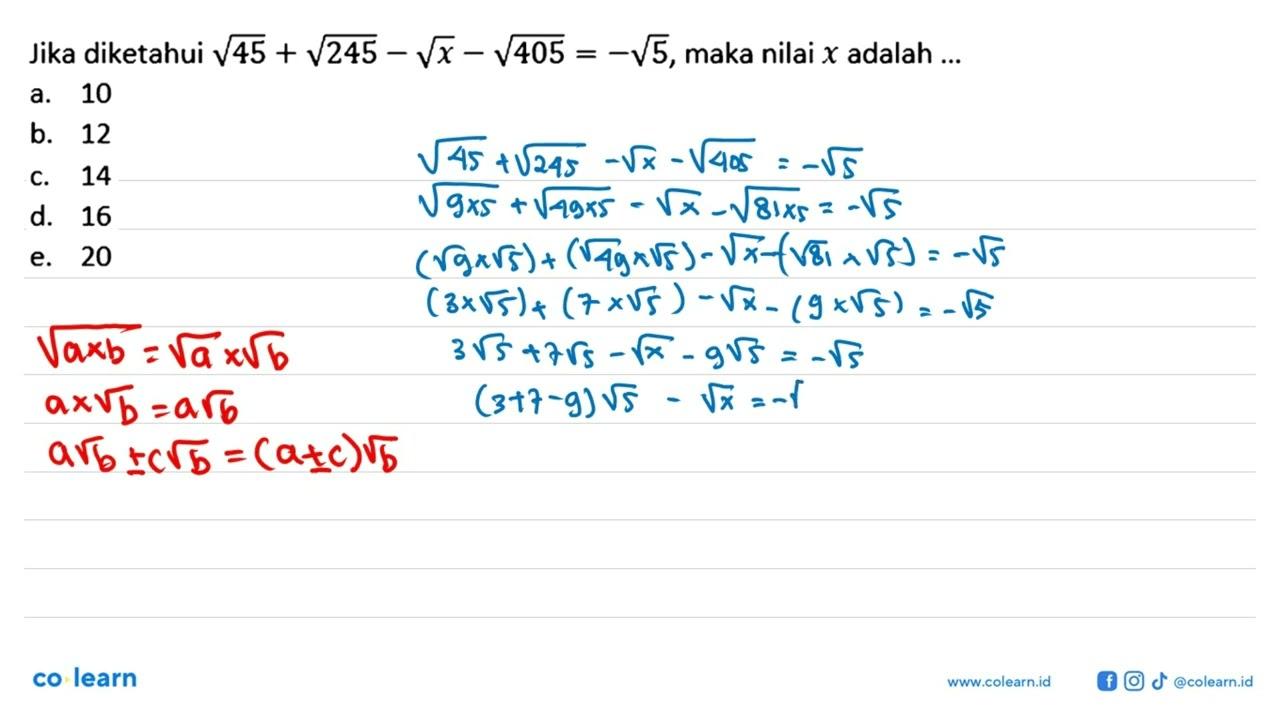 Jika diketahui √45 + √245 − √x − √405 = −√5, maka nilai x adalah ...
a. 10
b. 12
c. 14
d. 16
e. 20
√45 + √245 - √x - √405 = -√5
√9×5 + √49×5 - √x - √81×5 = -√5
(√9×√5) + (√49×√5) - √x - (√81 × √5) = -√5
(3×√5) + (7×√5) - √x - (9×√5) = -√5
3√5 + 7√5 - √x - 9√5 = -√5
(3+7-9)√5 - √x = -√
√a×b = √a × √b
a×√b = a√b
a√b ± c√b = (a±c)√b
co learn
www.colearn.id
@colearn.id